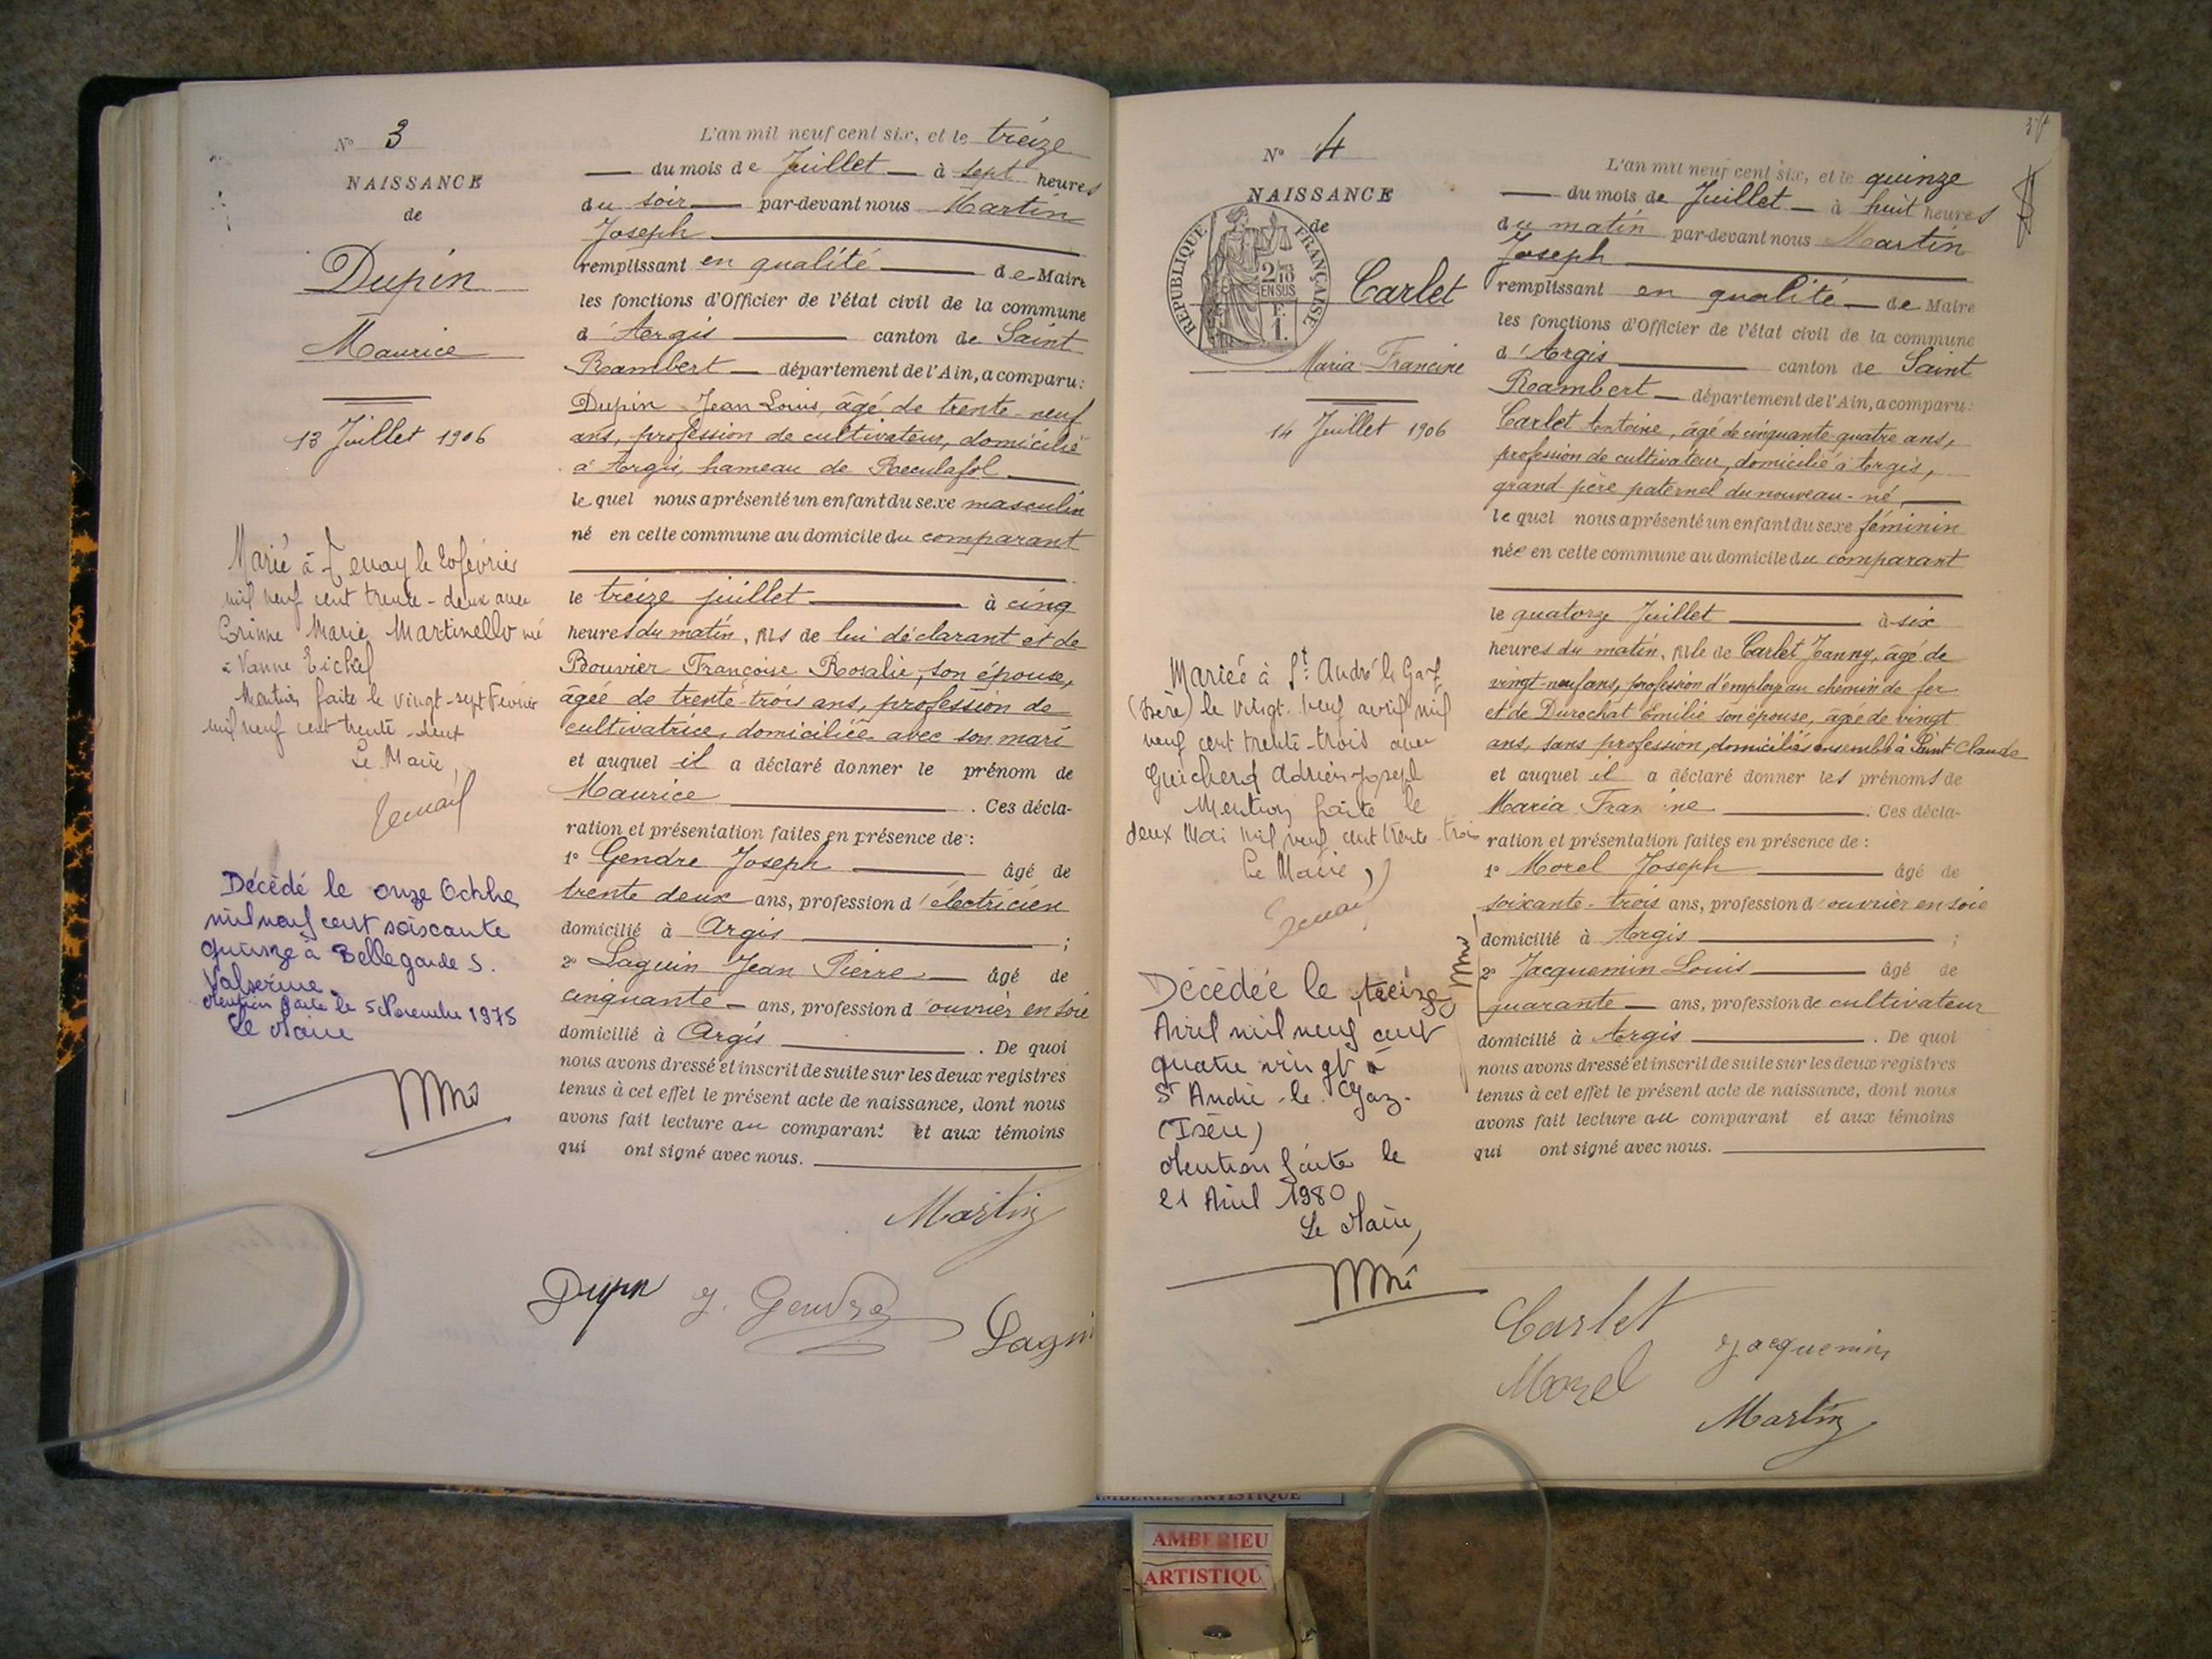 N° 3
NAISSANCE
de
Dupin
Maurice
13 Juillet 1906
Marié à Tenay le 20 février
mil neuf cent trente-deux avec
Corinne Marie Martinello né
à Vanne
Mention faite le vingt-sept Février
mil neuf cent trente-deux
Le Maire,
Décédé le onze Octobre
mil neuf cent soixante
quinze à Bellegarde S.
Valserine.
Mention faite le 5 Novembre 1975
Le Maire
L'an mil neuf cent six, et le treize
du mois de Juillet à sept heures
du soir par-devant nous Martin
Joseph
remplissant en qualité de Maire
les fonctions d'Officier de l'état civil de la commune
d'Argis canton de Saint
Rambert département de l'Ain, a comparu:
Dupin Jean Louis, âgé de trente-neuf
ans, profession de cultivateur, domicilié
à Argis, hameau de Reculafol
le quel nous a présenté un enfant du sexe masculin
né en cette commune au domicile du comparant
le treize juillet à cinq
heures du matin, fils de lui déclarant et de
Bouvier Françoise Rosalie, son épouse,
âgée de trente-trois ans, profession de
cultivatrice, domiciliée avec son mari
et auquel il a déclaré donner le prénom de
Maurice. Ces décla-
ration et présentation faites en présence de:
1° Gendre Joseph âgé de
trente deux ans, profession d'électricien
domicilié à Argis;
2° Laguin Jean Pierre âgé de
cinquante ans, profession d'ouvrier en soie
domicilié à Argis. De quoi
nous avons dressé et inscrit de suite sur les deux registres
tenus à cet effet le présent acte de naissance, dont nous
avons fait lecture au comparant et aux témoins
qui ont signé avec nous.
Martin
Dupin J. Gendre Lagui
N° 4
NAISSANCE
de
RÉPUBLIQUE FRANÇAISE
2/10
EN SUS
F.
1.
Carlet
Maria Francine
14 Juillet 1906
Mariée à St André le Gaz
(Isère) le vingt-neuf avril mil
neuf cent trente-trois avec
Guicherd Adrien Joseph
Mention faite le
deux Mai mil neuf cent trente-trois
Le Maire,
Décédée le treize
Avril mil neuf cent
quatre vingt à
St André-le-Gaz.
(Isère)
Mention faite le
21 Avril 1980
Le Maire,
L'an mil neuf cent six, et le quinze
du mois de Juillet à huit heures
du matin par-devant nous Martin
Joseph
remplissant en qualité de Maire
les fonctions d'Officier de l'état civil de la commune
d'Argis canton de Saint
Rambert département de l'Ain, a comparu:
Carlet Antoine, âgé de cinquante-quatre ans,
profession de cultivateur, domicilié à Argis,
grand-père paternel du nouveau-né
le quel nous a présenté un enfant du sexe féminin
née en cette commune au domicile du comparant
le quatorze Juillet à six
heures du matin, fille de Carlet Jeanny, âgé de
vingt-neuf ans, profession d'employé au chemin de fer
et de Durochat Emilie son épouse, âgée de vingt
ans, sans profession, domiciliés ensemble à Saint-Claude
et auquel il a déclaré donner les prénoms de
Maria Francine. Ces décla-
ration et présentation faites en présence de:
1° Morel Joseph âgé de
soixante-trois ans, profession d'ouvrier en soie
domicilié à Argis;
2° Jacquemin Louis âgé de
quarante ans, profession de cultivateur
domicilié à Argis. De quoi
nous avons dressé et inscrit de suite sur les deux registres
tenus à cet effet le présent acte de naissance, dont nous
avons fait lecture au comparant et aux témoins
qui ont signé avec nous.
Carlet Jacquemin
Morel
Martin
AMBERIEU ARTISTIQUE
AMBERIEU
ARTISTIQU